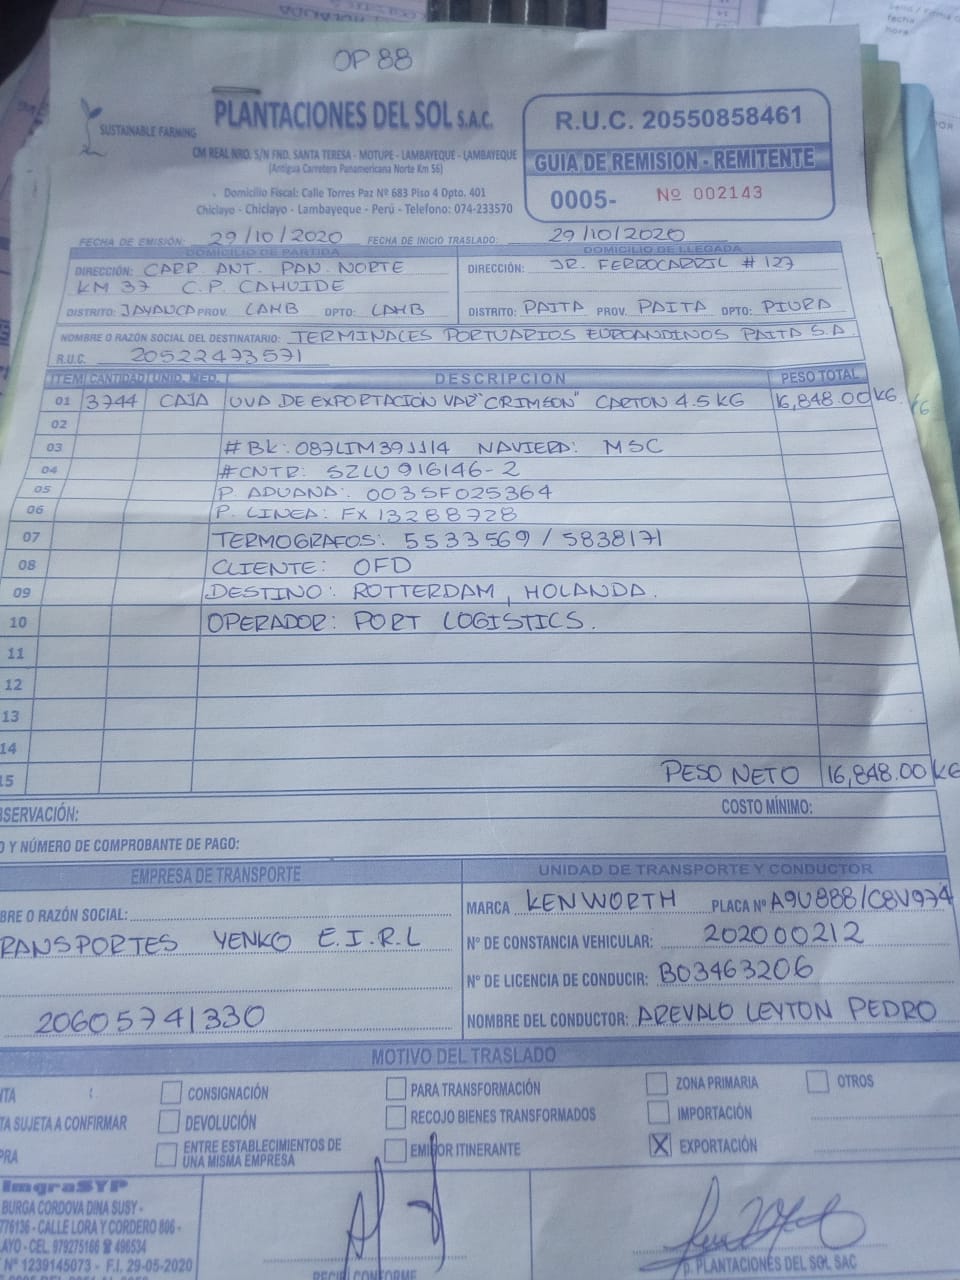 OP 88
SUSTAINABLE FARMING
PLANTACIONES DEL SOL S.A.C.
CM REAL NRO. S/N FND. SANTA TERESA - MOTUPE - LAMBAYEQUE - LAMBAYEQUE
(Antigua Carretera Panamericana Norte Km 56)
Domicilio Fiscal: Calle Torres Paz Nº 683 Piso 4 Dpto. 401
Chiclayo - Chiclayo - Lambayeque - Perú - Telefono: 074-233570
R.U.C. 20550858461
GUIA DE REMISION - REMITENTE
0005- Nº 002143
FECHA DE EMISIÓN: 29/10/2020 FECHA DE INICIO TRASLADO: 29/10/2020
DOMICILIO DE PARTIDA
DIRECCIÓN: CARR. ANT. PAN. NORTE
KM 37 C.P. CAHUIDE
DISTRITO: JAYANCA PROV. LAMB DPTO: LAMB
DOMICILIO DE LLEGADA
DIRECCIÓN: JR. FERROCARRIL # 127
DISTRITO: PAITA PROV. PAITA DPTO: PIURA
NOMBRE O RAZÓN SOCIAL DEL DESTINATARIO: TERMINALES PORTUARIOS EUROANDINOS PAITA S.A
R.U.C. 20522473571
ITEM CANTIDAD UNID. MED. DESCRIPCION PESO TOTAL
01 3744 CAJA UVA DE EXPORTACIÓN VAR "CRIMSON" CARTON 4.5 KG 16,848.00 KG.
02
03 #BK: 087LIM391114 NAVIERA: MSC
04 #CNTR: SZLU 916146-2
05 P. ADUANA: 003SF025364
06 P. LINEA: FX13288728
07 TERMOGRAFOS: 5533569 / 5838171
08 CLIENTE: OFD
09 DESTINO: ROTTERDAM, HOLANDA.
10 OPERADOR: PORT LOGISTICS.
11
12
13
14
15 PESO NETO 16,848.00 KG
SERVACIÓN: COSTO MÍNIMO:
O Y NÚMERO DE COMPROBANTE DE PAGO:
EMPRESA DE TRANSPORTE
BRE O RAZÓN SOCIAL:
RANSPORTES YENKO E.I.R.L
20605741330
UNIDAD DE TRANSPORTE Y CONDUCTOR
MARCA KENWORTH PLACA Nº A9U888/C8V974
Nº DE CONSTANCIA VEHICULAR: 202000212
Nº DE LICENCIA DE CONDUCIR: B03463206
NOMBRE DEL CONDUCTOR: AREVALO LEYTON PEDRO
MOTIVO DEL TRASLADO
NTA CONSIGNACIÓN PARA TRANSFORMACIÓN ZONA PRIMARIA OTROS
TA SUJETA A CONFIRMAR DEVOLUCIÓN RECOJO BIENES TRANSFORMADOS IMPORTACIÓN
PRA ENTRE ESTABLECIMIENTOS DE UNA MISMA EMPRESA EMISOR ITINERANTE X EXPORTACIÓN
ImgraSYP
BURGA CORDOVA DINA SUSY -
776136 - CALLE LORA Y CORDERO 806 -
AYO - CEL. 979275166 ☎ 496534
Nº 1239145073 - F.I. 29-05-2020
RECIBI CONFORME
P. PLANTACIONES DEL SOL SAC